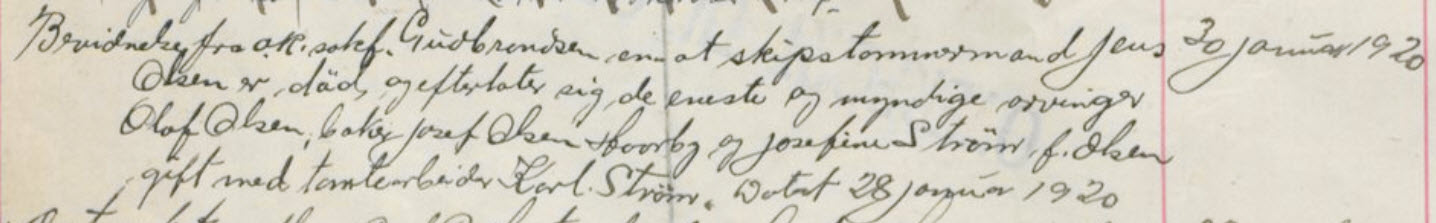 Bevidnelse fra o.r.sakf. Gudbrandsen om at skipstømmermand Jens 30 januar 1920
Olsen er död, og efterlater sig de eneste og myndige arvinger
Olaf Olsen, baker Josef Olsen Hoorby og Josefine Ström f. Olsen
gift med tomtearbeider Karl Ström. Datert 28 januar 1920